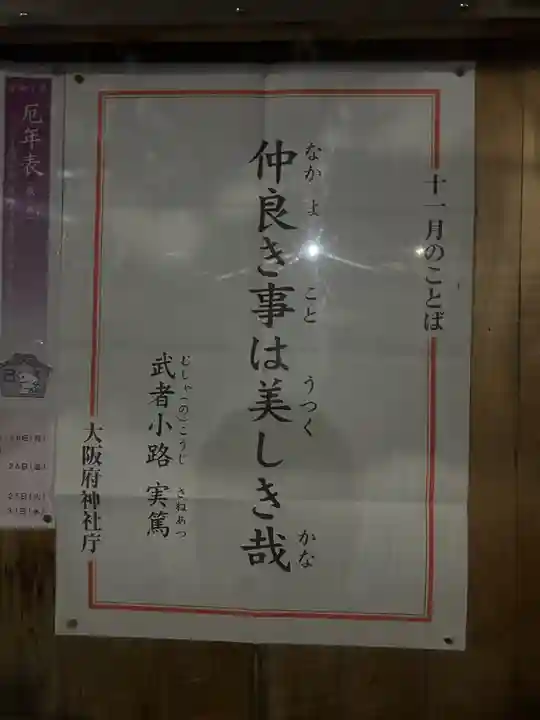 十一月のことば
仲良き事は美しき哉
なか よ こと うつく かな
武者小路 実篤
むしゃ(の)こうじ さねあつ
大阪府神社庁
厄年表